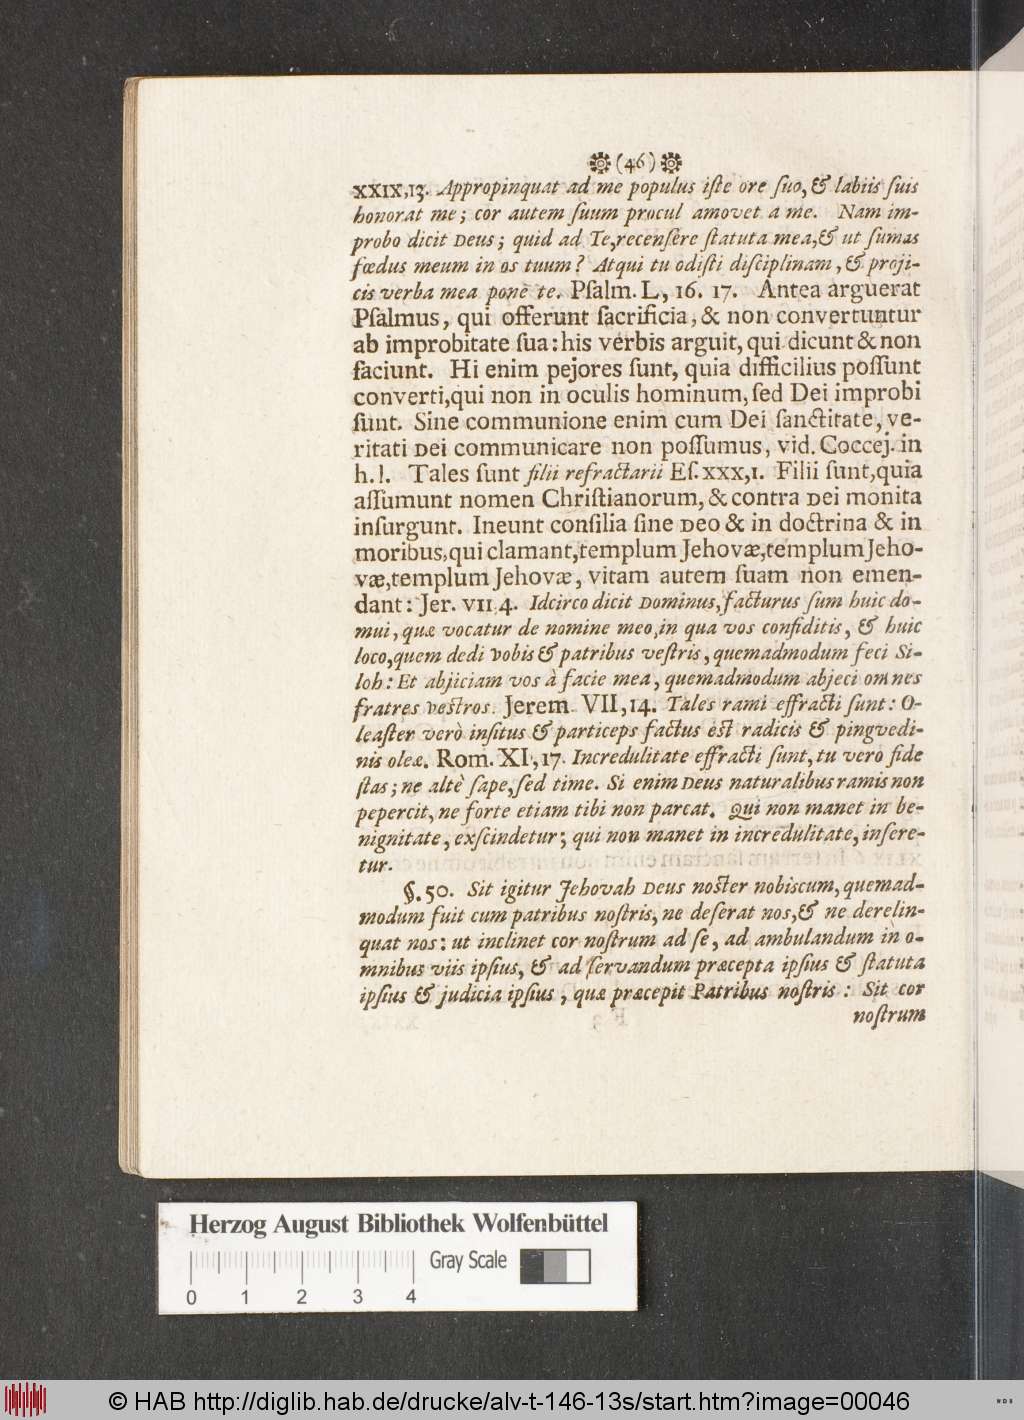 (46)
XXIX,13. Appropinquat ad me populus iſte ore ſuo, & labiis ſuis
honorat me; cor autem ſuum procul amovet a me. Nam im-
probo dicit Deus; quid ad Te, recenſere ſtatuta mea, & ut ſumas
fœdus meum in os tuum? Atqui tu odiſti diſciplinam, & proji-
cis verba mea ponè te. Pſalm. L, 16. 17. Antea arguerat
Pſalmus, qui offerunt ſacrificia, & non convertuntur
ab improbitate ſua: his verbis arguit, qui dicunt & non
faciunt. Hi enim pejores ſunt, quia difficilius poſſunt
converti, qui non in oculis hominum, ſed Dei improbi
ſunt. Sine communione enim cum Dei ſanctitate, ve-
ritati Dei communicare non poſſumus, vid. Coccej. in
h. l. Tales ſunt filii refractarii Eſ. XXX, 1. Filii ſunt, quia
aſſumunt nomen Chriſtianorum, & contra Dei monita
inſurgunt. Ineunt conſilia ſine Deo & in doctrina & in
moribus, qui clamant, templum Jehovæ, templum Jeho-
væ, templum Jehovæ, vitam autem ſuam non emen-
dant: Jer. VII 4. Idcirco dicit Dominus, facturus ſum huic do-
mui, quæ vocatur de nomine meo, in qua vos confiditis, & huic
loco, quem dedi vobis & patribus veſtris, quemadmodum feci Si-
loh: Et abjiciam vos à facie mea, quemadmodum abjeci omnes
fratres veſtros. Jerem. VII, 14. Tales rami effracti ſunt: O-
leaſter verò inſitus & particeps factus eſt radicis & pingvedi-
nis oleæ. Rom. XI, 17. Incredulitate effracti ſunt, tu vero fide
ſtas; ne altè ſape, ſed time. Si enim Deus naturalibus ramis non
pepercit, ne forte etiam tibi non parcat. Qui non manet in be-
nignitate, exſcindetur; qui non manet in incredulitate, inſere-
tur.
§. 50. Sit igitur Jehovah Deus noſter nobiscum, quemad-
modum fuit cum patribus noſtris, ne deſerat nos, & ne derelin-
quat nos: ut inclinet cor noſtrum ad ſe, ad ambulandum in o-
mnibus viis ipſius, & ad ſervandum præcepta ipſius & ſtatuta
ipſius & judicia ipſius, quæ præcepit Patribus noſtris: Sit cor
noſtrum
Herzog August Bibliothek Wolfenbüttel
Gray Scale
0 1 2 3 4
© HAB http://diglib.hab.de/drucke/alv-t-146-13s/start.htm?image=00046